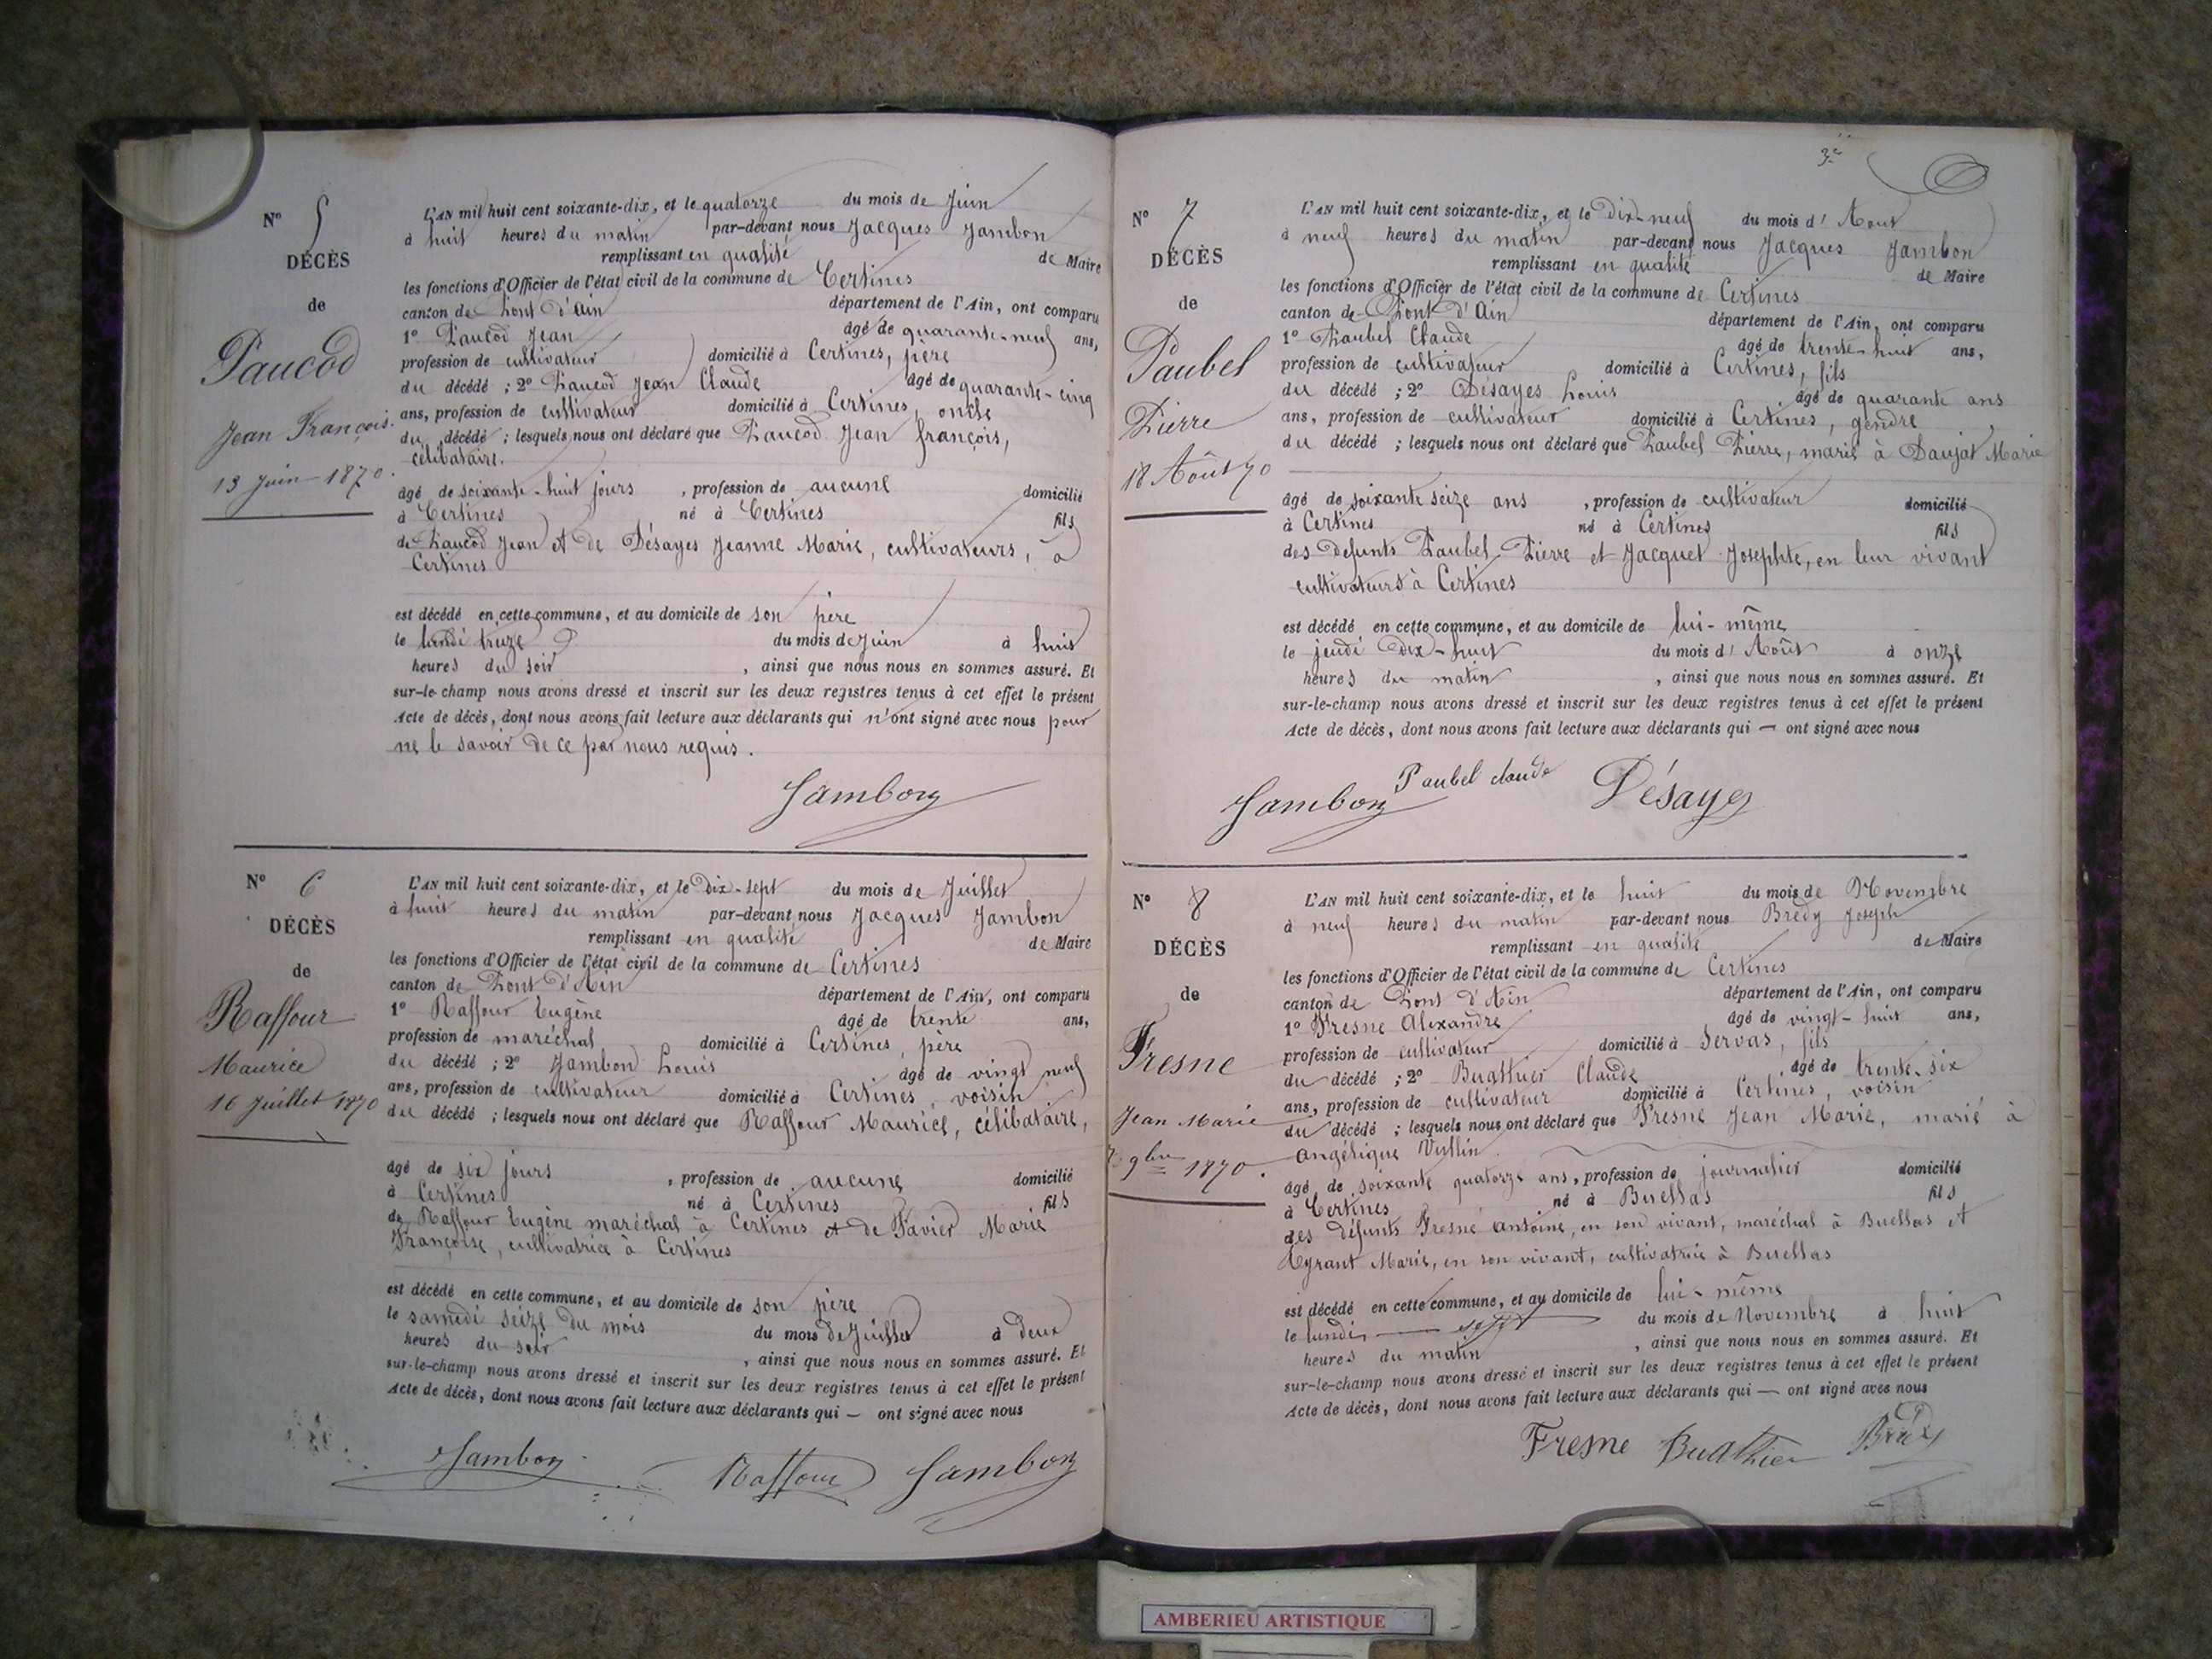 N° 5
DÉCÈS
de
Paucod
Jean François
13 Juin 1870.
L'AN mil huit cent soixante-dix, et le quatorze du mois de Juin
à huit heures du matin par-devant nous Jacques Jambon
remplissant en qualité de Maire
les fonctions d'Officier de l'état civil de la commune de Certines
canton de Pont d'Ain département de l'Ain, ont comparu
1° Paucod Jean âgé de quarante-neuf ans,
profession de cultivateur domicilié à Certines, père
du décédé ; 2° Paucod Jean Claude âgé de quarante-cinq
ans, profession de cultivateur domicilié à Certines, oncle
du décédé ; lesquels nous ont déclaré que Paucod Jean françois,
célibataire.
âgé de soixante-huit jours , profession de aucune domicilié
à Certines né à Certines fils
de Paucod Jean et de Désayes Jeanne Marie, cultivateurs, à
Certines
est décédé en cette commune, et au domicile de son père
le lundi treize du mois de Juin à huit
heures du soir , ainsi que nous nous en sommes assuré. Et
sur-le-champ nous avons dressé et inscrit sur les deux registres tenus à cet effet le présent
Acte de décès, dont nous avons fait lecture aux déclarants qui n'ont signé avec nous pour
ne le savoir de ce par nous requis.
Jambon
N° 6
DÉCÈS
de
Raffour
Maurice
16 Juillet 1870
L'AN mil huit cent soixante-dix, et le dix-sept du mois de Juillet
à huit heures du matin par-devant nous Jacques Jambon
remplissant en qualité de Maire
les fonctions d'Officier de l'état civil de la commune de Certines
canton de Pont d'Ain département de l'Ain, ont comparu
1° Raffour Eugène âgé de trente ans,
profession de maréchal domicilié à Certines, père
du décédé ; 2° Jambon Louis âgé de vingt neuf
ans, profession de cultivateur domicilié à Certines, voisin
du décédé ; lesquels nous ont déclaré que Raffour Maurice, célibataire,
âgé de six jours , profession de aucune domicilié
à Certines né à Certines fils
de Raffour Eugène maréchal à Certines et de Favier Marie
Françoise, cultivatrice à Certines
est décédé en cette commune, et au domicile de son père
le samedi seize du mois du mois de Juillet à deux
heures du soir , ainsi que nous nous en sommes assuré. Et
sur-le-champ nous avons dressé et inscrit sur les deux registres tenus à cet effet le présent
Acte de décès, dont nous avons fait lecture aux déclarants qui — ont signé avec nous
Jambon Raffour Jambon
3e
N° 7
DÉCÈS
de
Paubel
Pierre
18 Août 70
L'AN mil huit cent soixante-dix, et le Dix-neuf du mois d'Aout
à neuf heures du matin par-devant nous Jacques Jambon
remplissant en qualité de Maire
les fonctions d'Officier de l'état civil de la commune de Certines
canton de Pont d'Ain département de l'Ain, ont comparu
1° Paubel Claude âgé de trente-huit ans,
profession de cultivateur domicilié à Certines, fils
du décédé ; 2° Désayes Louis âgé de quarante ans
ans, profession de cultivateur domicilié à Certines, gendre
du décédé ; lesquels nous ont déclaré que Paubel Pierre, marié à Daujat Marie
âgé de soixante seize ans , profession de cultivateur domicilié
à Certines né à Certines fils
des défunts Paubel Pierre et Jacquet Josephte, en leur vivant
cultivateurs à Certines
est décédé en cette commune, et au domicile de lui-même
le jeudi dix-huit du mois d'Août à onze
heures du matin , ainsi que nous nous en sommes assuré. Et
sur-le-champ nous avons dressé et inscrit sur les deux registres tenus à cet effet le présent
Acte de décès, dont nous avons fait lecture aux déclarants qui — ont signé avec nous
Jambon Paubel claude Désayes
N° 8
DÉCÈS
de
Fresne
Jean Marie
7 9bre 1870.
L'AN mil huit cent soixante-dix, et le huit du mois de Novembre
à neuf heures du matin par-devant nous Brédy Joseph
remplissant en qualité de Maire
les fonctions d'Officier de l'état civil de la commune de Certines
canton de Pont d'Ain département de l'Ain, ont comparu
1° Fresne Alexandre âgé de vingt-huit ans,
profession de cultivateur domicilié à Servas, fils
du décédé ; 2° Buathier Claude âgé de trente-six
ans, profession de cultivateur domicilié à Certines, voisin
du décédé ; lesquels nous ont déclaré que Fresne Jean Marie, marié à
angélique Vullin
âgé de soixante quatorze ans, profession de journalier domicilié
à Certines né à Buellas fils
des défunts Fresne antoine, en son vivant, maréchal à Buellas et
Marie, en son vivant, cultivatrice à Buellas
est décédé en cette commune, et au domicile de lui-même
le lundi sept du mois de Novembre à huit
heures du matin , ainsi que nous nous en sommes assuré. Et
sur-le-champ nous avons dressé et inscrit sur les deux registres tenus à cet effet le présent
Acte de décès, dont nous avons fait lecture aux déclarants qui — ont signé avec nous
Fresne Buathier
AMBERIEU ARTISTIQUE